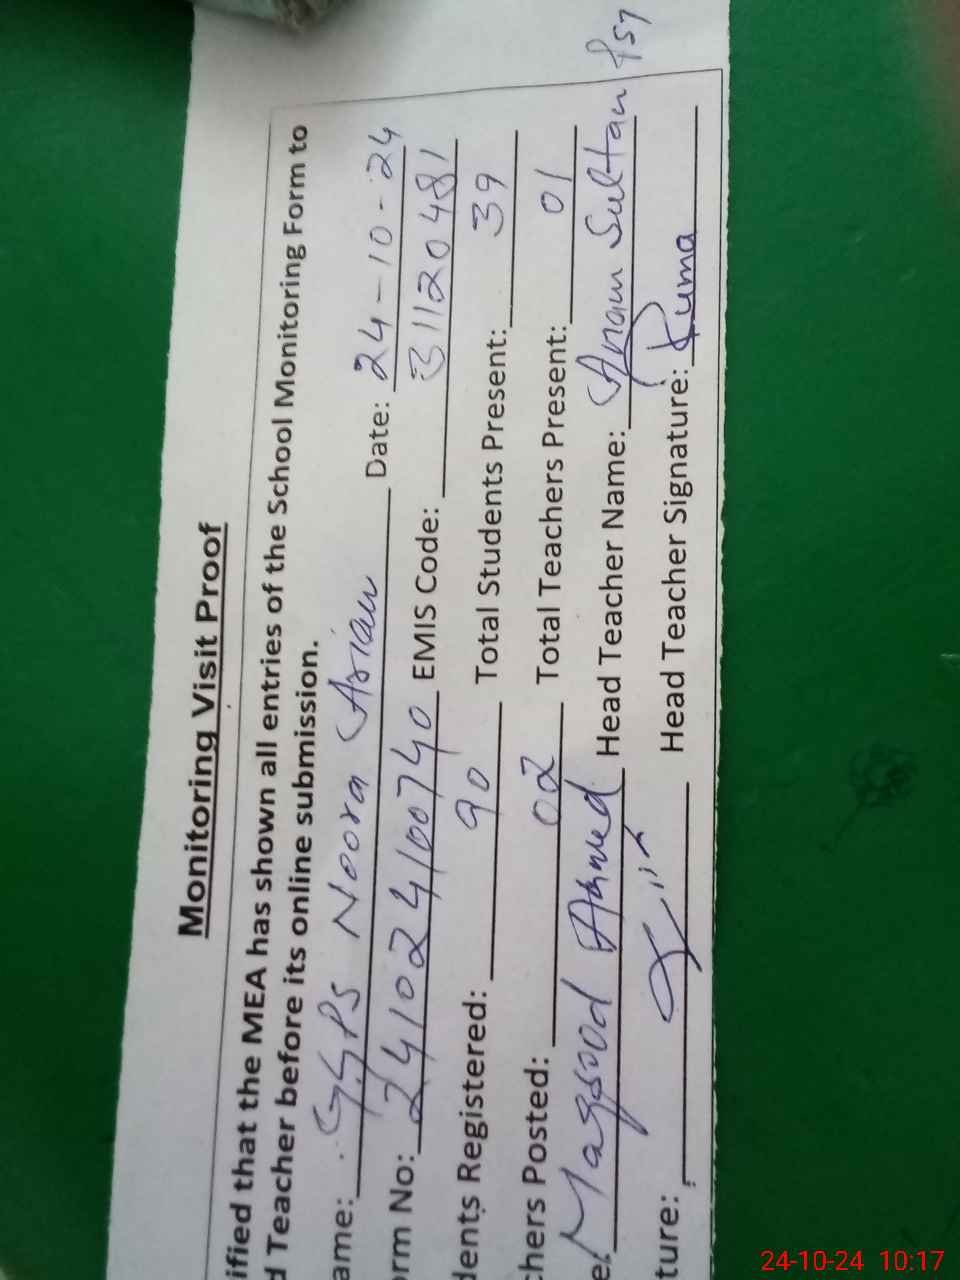 Monitoring Visit Proof
ified that the MEA has shown all entries of the School Monitoring Form to
d Teacher before its online submission.
ame: G.G.PS Noora Asian Date: 24-10-24
orm No: 241024100740 EMIS Code: 31120481
dents Registered: 90 Total Students Present: 39
chers Posted: 02 Total Teachers Present: 01
e: Maqsood Ahmed Head Teacher Name: Anam Sultan PST
ture: Head Teacher Signature:
24-10-24 10:17